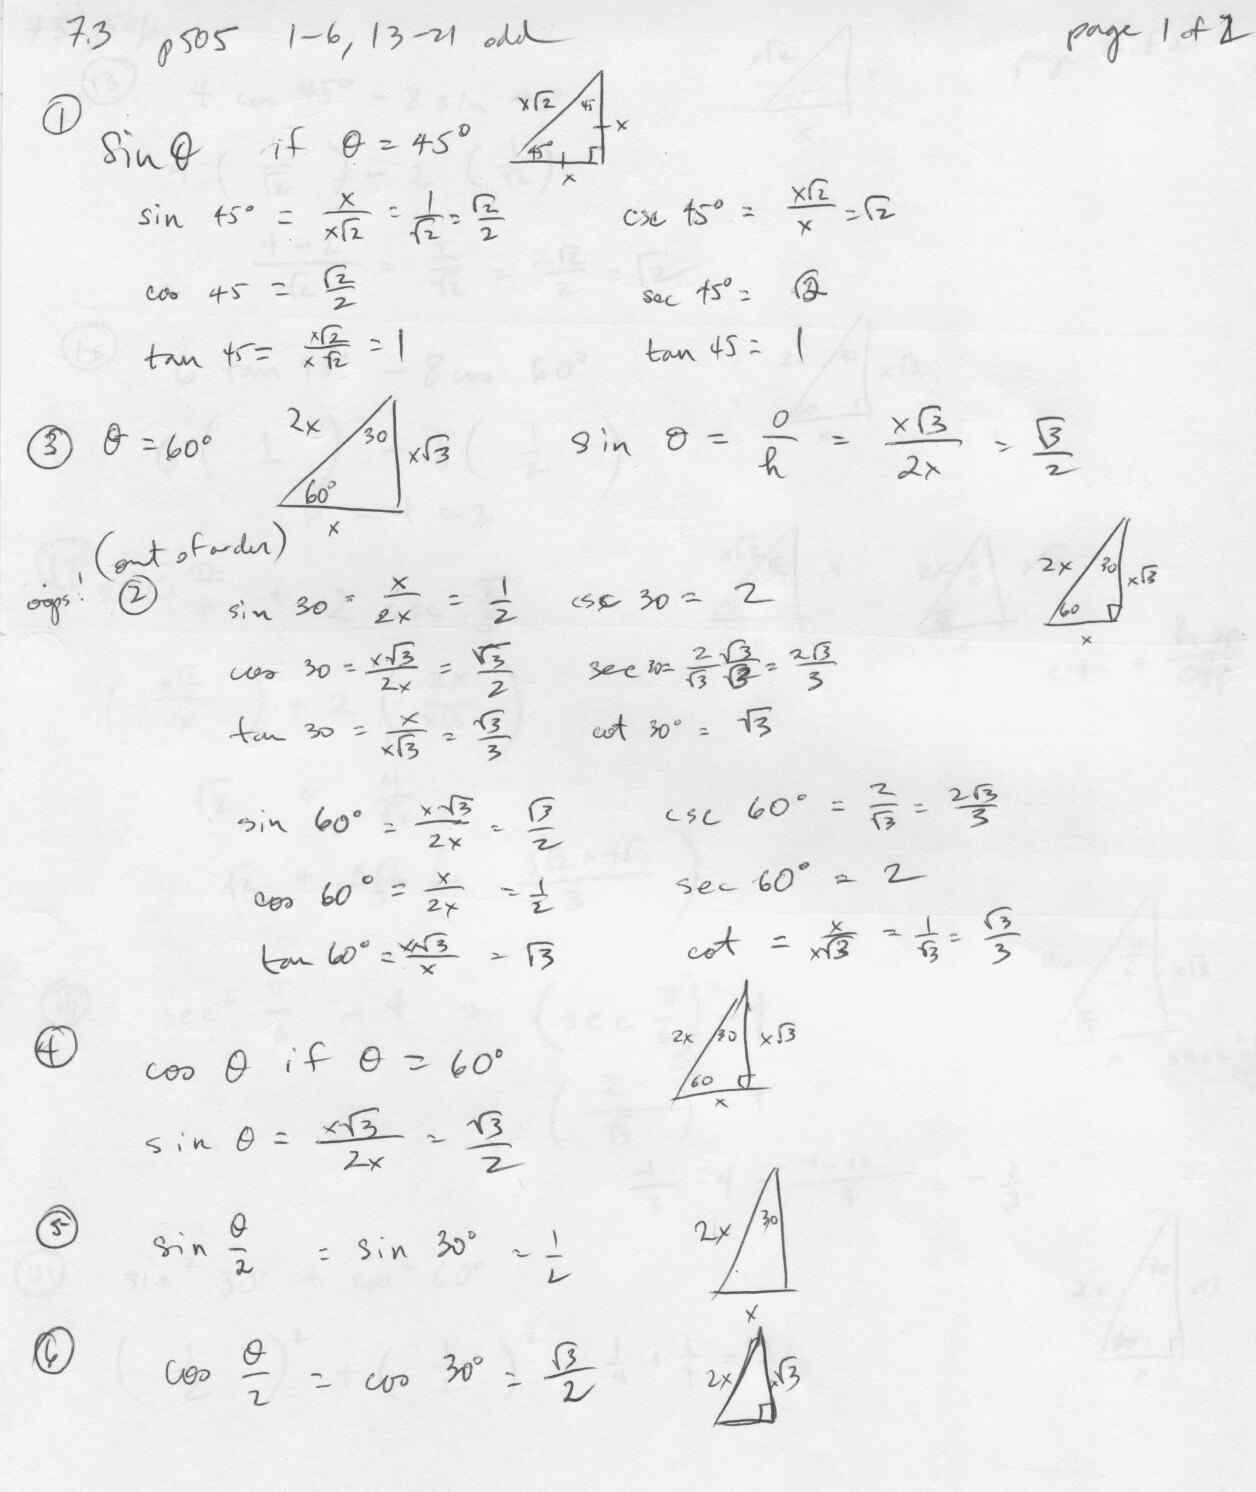 7.3 p505 1-6, 13-21 odd page 1 of 2
① sin θ if θ = 45° x√2 45 x 45° x
sin 45° = x/x√2 = 1/√2 = √2/2 csc 45° = x√2/x = √2
cos 45 = √2/2 sec 45° = √2
tan 45 = x√2/x√2 = 1 tan 45 = 1
③ θ = 60° 2x 30 x√3 60° x sin θ = o/h = x√3/2x = √3/2
oops! (out of order)
② sin 30 = x/2x = 1/2 csc 30 = 2 2x 30 x√3 60 x
cos 30 = x√3/2x = √3/2 sec 30 = 2/√3 √3/√3 = 2√3/3
tan 30 = x/x√3 = √3/3 cot 30° = √3
sin 60° = x√3/2x = √3/2 csc 60° = 2/√3 = 2√3/3
cos 60° = x/2x = 1/2 sec 60° = 2
tan 60° = x√3/x = √3 cot = x/x√3 = 1/√3 = √3/3
④ cos θ if θ = 60° 2x 30 x√3 60 x
sin θ = x√3/2x = √3/2
⑤ sin θ/2 = sin 30° = 1/2 2x 30 x
⑥ cos θ/2 = cos 30° = √3/2 2x x√3